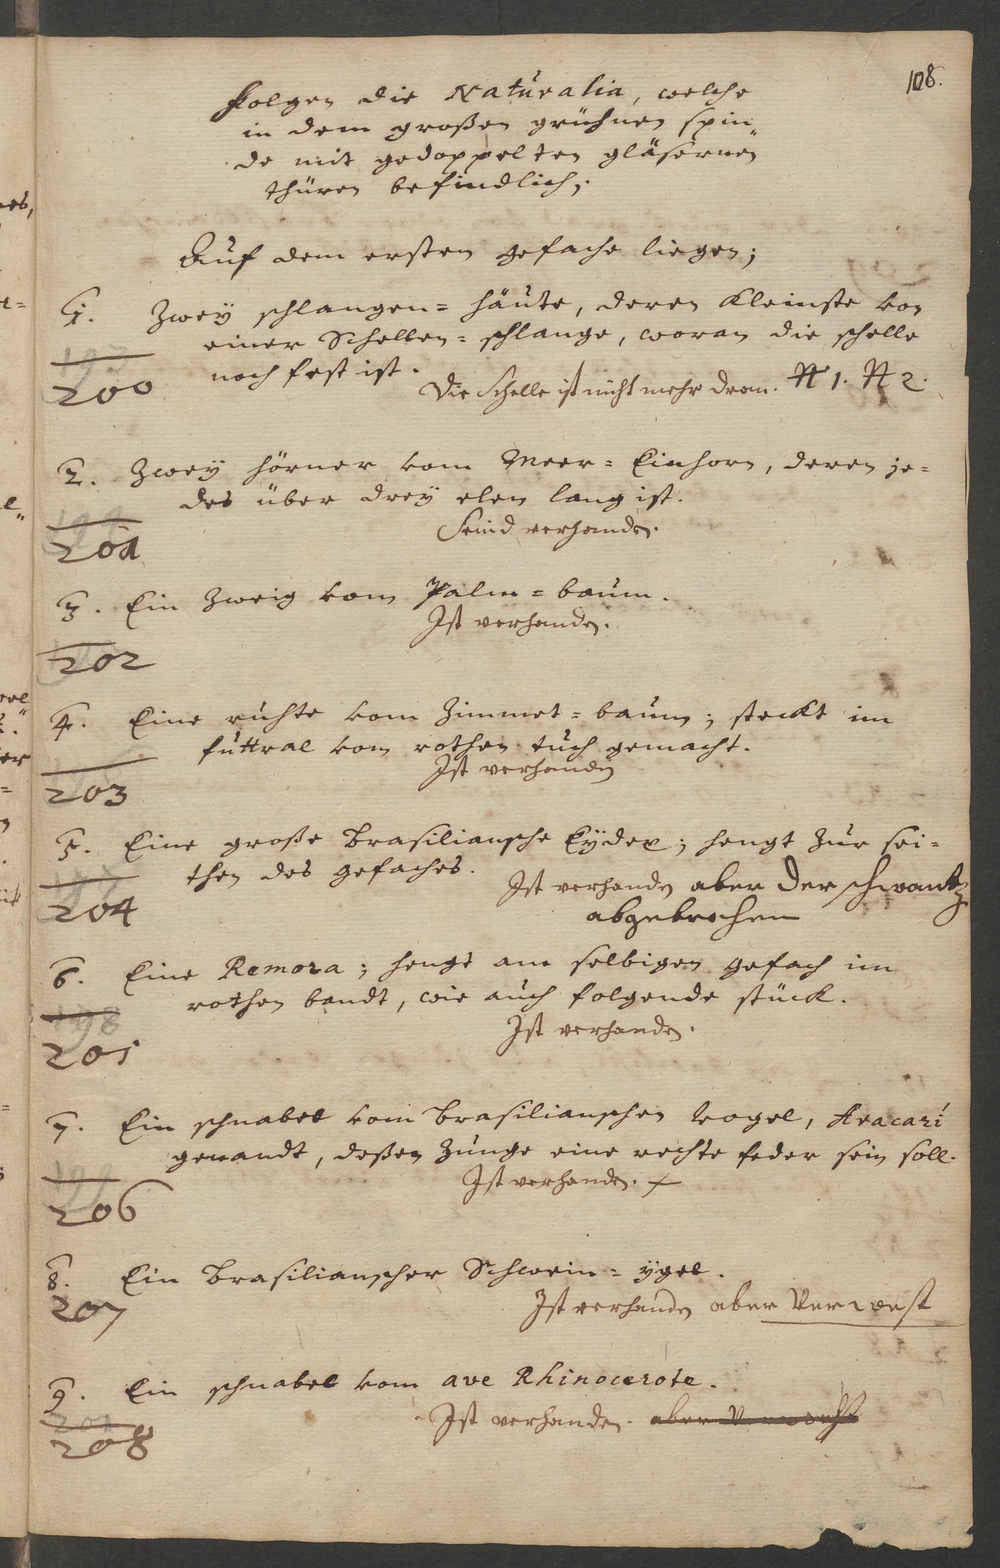 108.
Folgen die Naturalia, welche
in dem großen grühnen spin„
de mit gedoppelten gläsernen
thüren befindlich;
Auf dem ersten gefache liegen;
1. Zweÿ schlangen=häute, deren kleinste von
einer Schellen=schlange, woran die schelle
noch fest ist.
200
Die Schelle ist nicht mehr dran. N 1. N 2.
2. Zweÿ hörner vom Meer=Einhorn, deren je=
des über dreÿ elen lang ist.
Seind verhanden.
201
3. Ein Zweig vom Palm=baum.
Ist verhanden.
202
4. Eine ruhte vom Zimmet=baum; steckt im
futtral vom rothen tuch gemacht.
Ist verhanden
203
5. Eine große Brasiliansche Eÿdex; hengt zur sei=
then des gefaches.
Ist verhanden aber der schwantz
abgebrochen
204
6. Eine Remora; hengt am selbigen gefach im
rothen bandt, wie auch folgende stück.
198
Ist verhanden.
205
7. Ein schnabel vom Brasilianschen vogel, Aracari
genandt, deßen zunge eine rechte feder sein soll.
199
Ist verhanden. +
206
8. Ein Brasilianscher Schwein=ÿgel.
207
Ist verhanden aber Verwest
9. Ein schnabel vom ave Rhinocerote.
201
Ist verhanden. aber Verwest
208